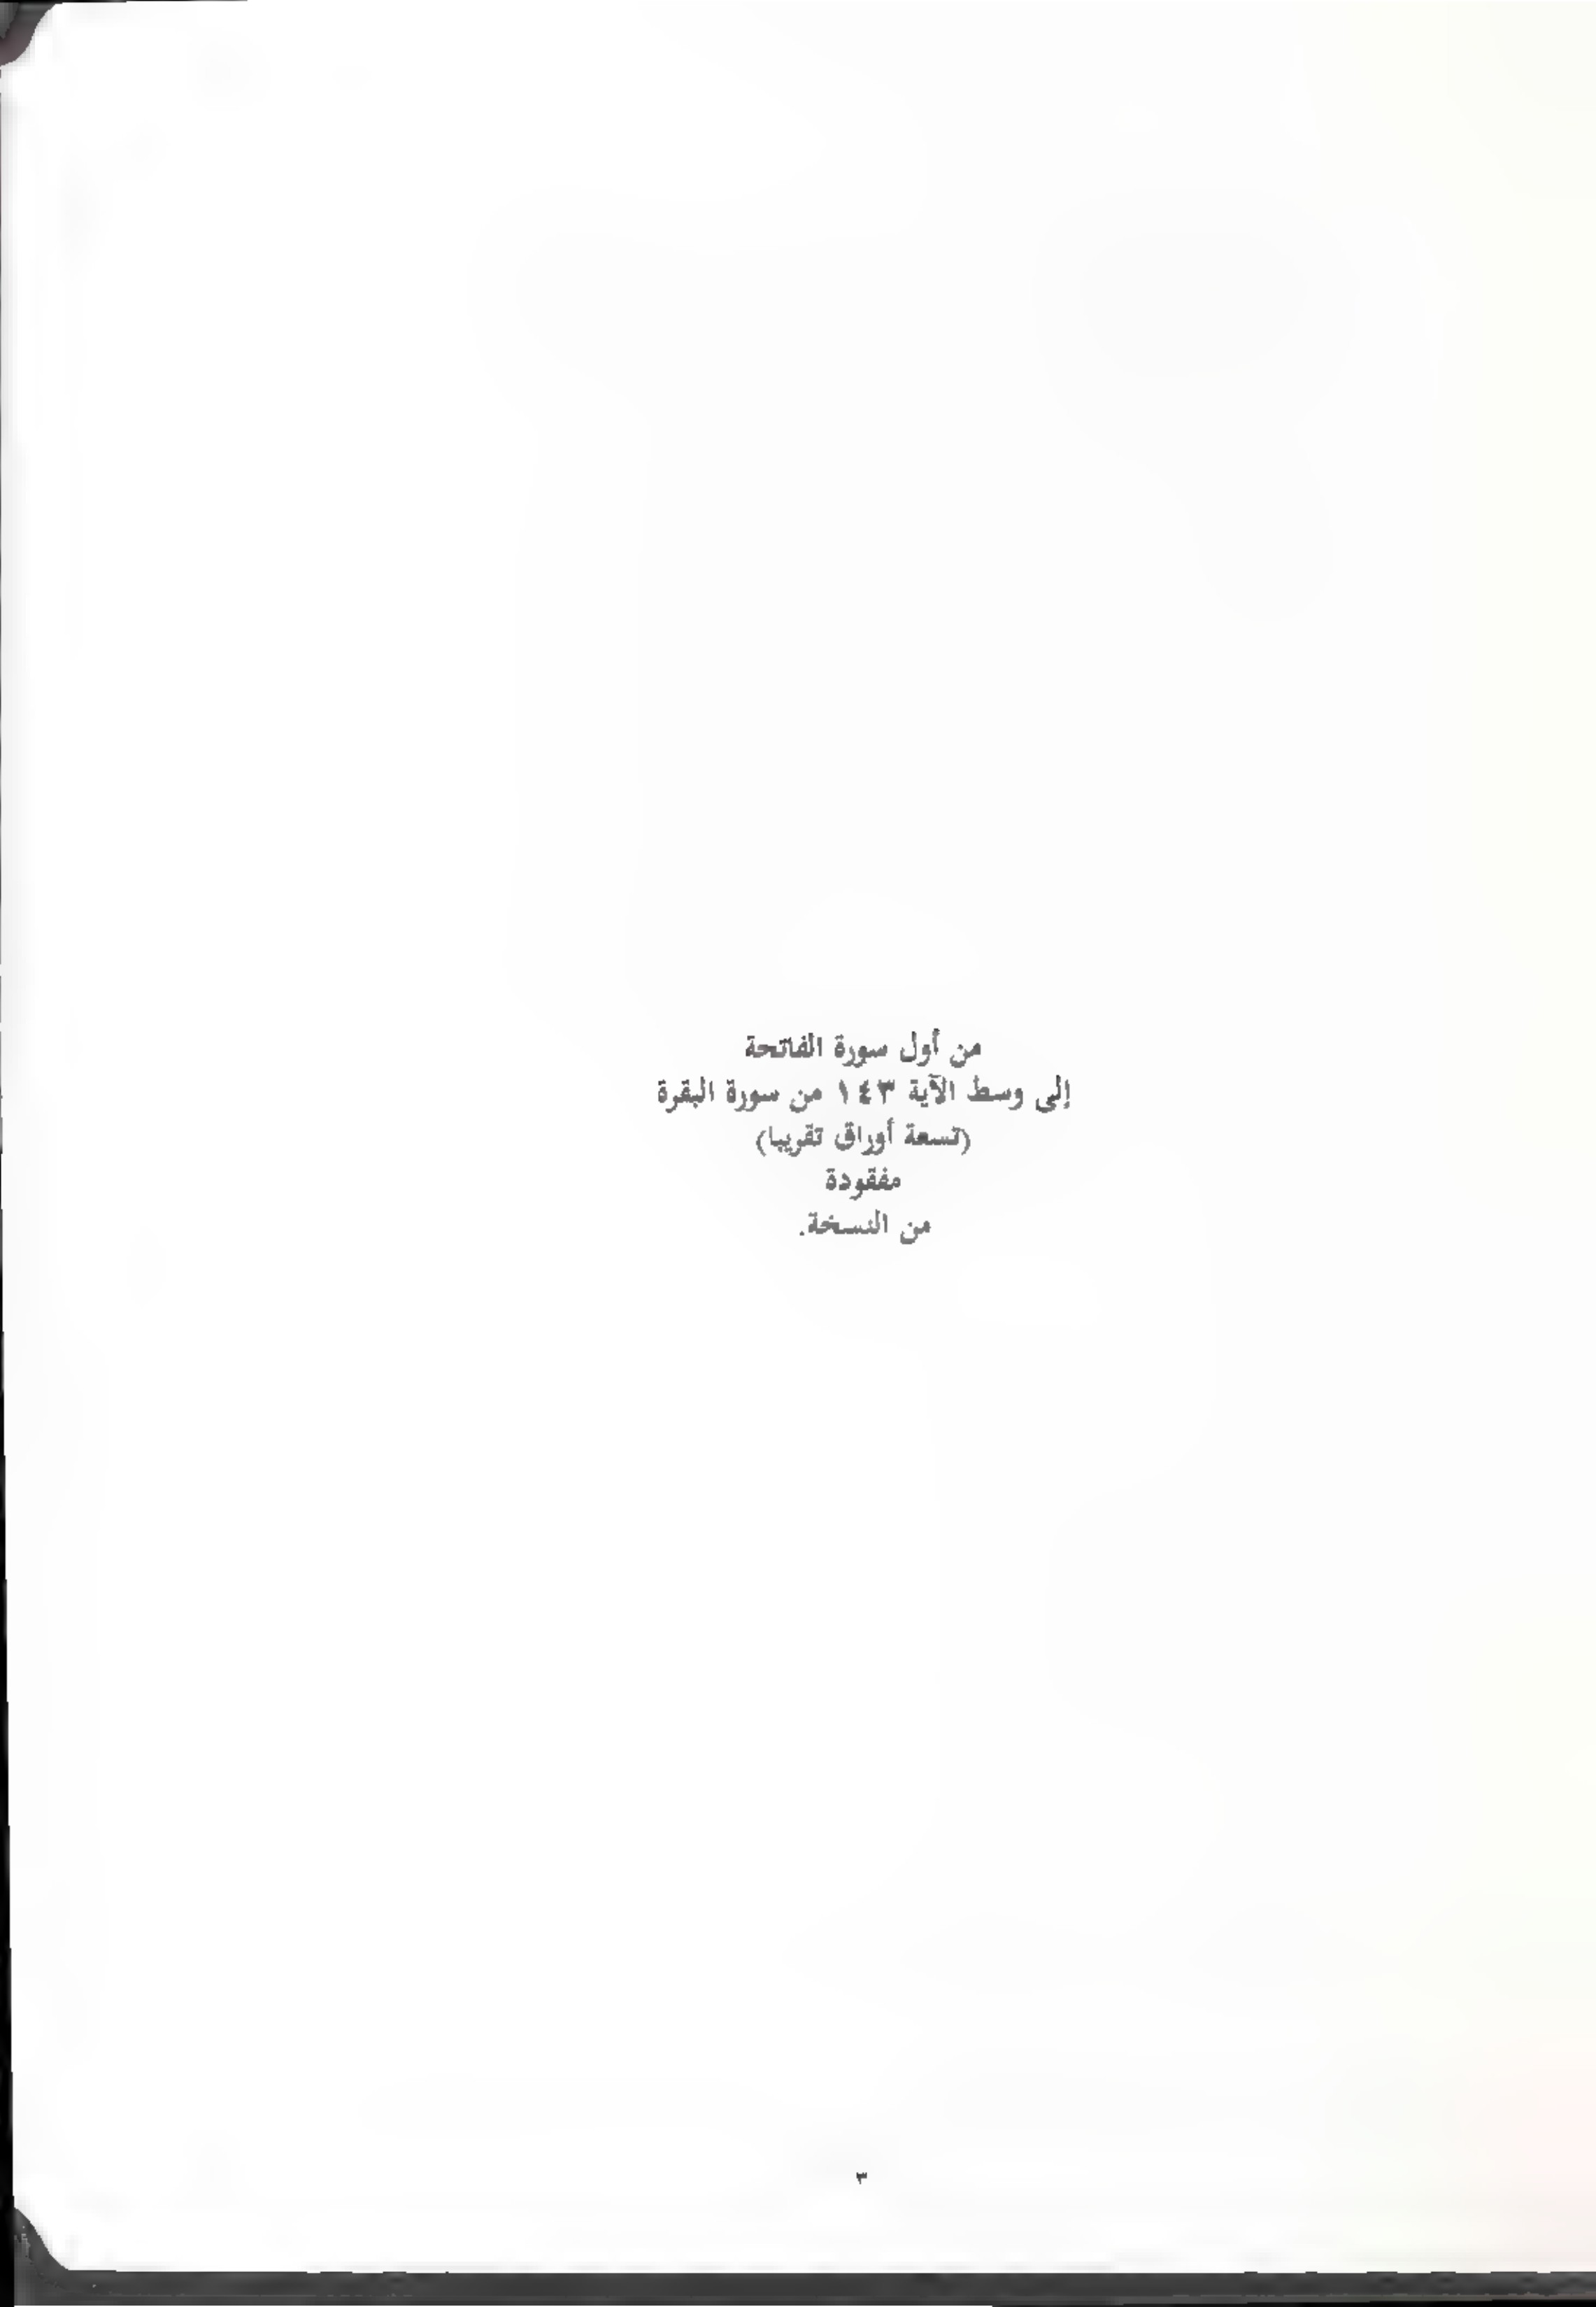 من أول سورة الفاتحة
إلى وسط الآية ١٤٣ من سورة البقرة
(تسعة أوراق تقريبا)
مفقودة
من النسخة.
٣